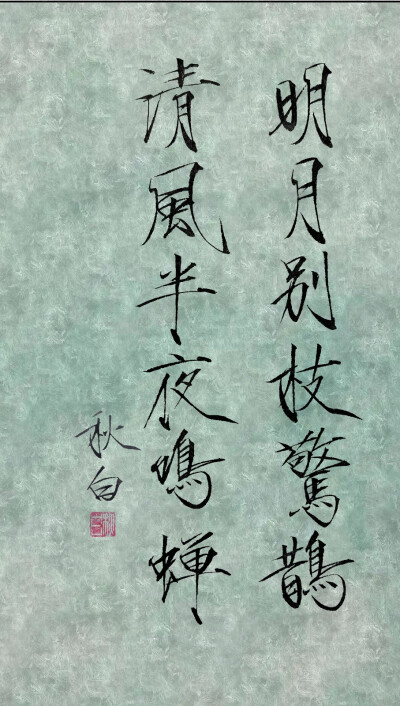 明月别枝驚鵲
清風半夜鳴蝉
秋白